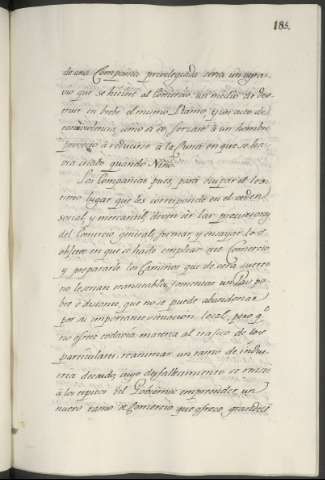 185.
de una Compañia privilegiada seria un agra-
vio que se hiciese al Comercio, un medio de des-
truir en breve el mismo Ramo, y un acto de
violencia como si se forzare a un hombre
provecto á reducirse a la Cuna en que se ha-
via criado quando Niño.
Las Compañias pues, para ocupar el le-
gitimo lugar que les corresponde en el orden
social, y mercantil, deven ser las precursoras
del Comercio general, formar, y ensayar los
objetos en que se ha de emplear este Comercio
y prepararle los Caminos que de otra suerte
no le serian transitables, fomentar un Pais po-
bre ó distante, que no se puede abandonar
por su importante situacion local, pero q.e
no ofrece todavia materia al trafico de los
particulares: reanimar un ramo de indus-
tria decaido, cuyo desfallecimiento se resiste
á los esfuerzos del Gobierno: emprender un
nuevo ramo de Comercio que ofrece grandes